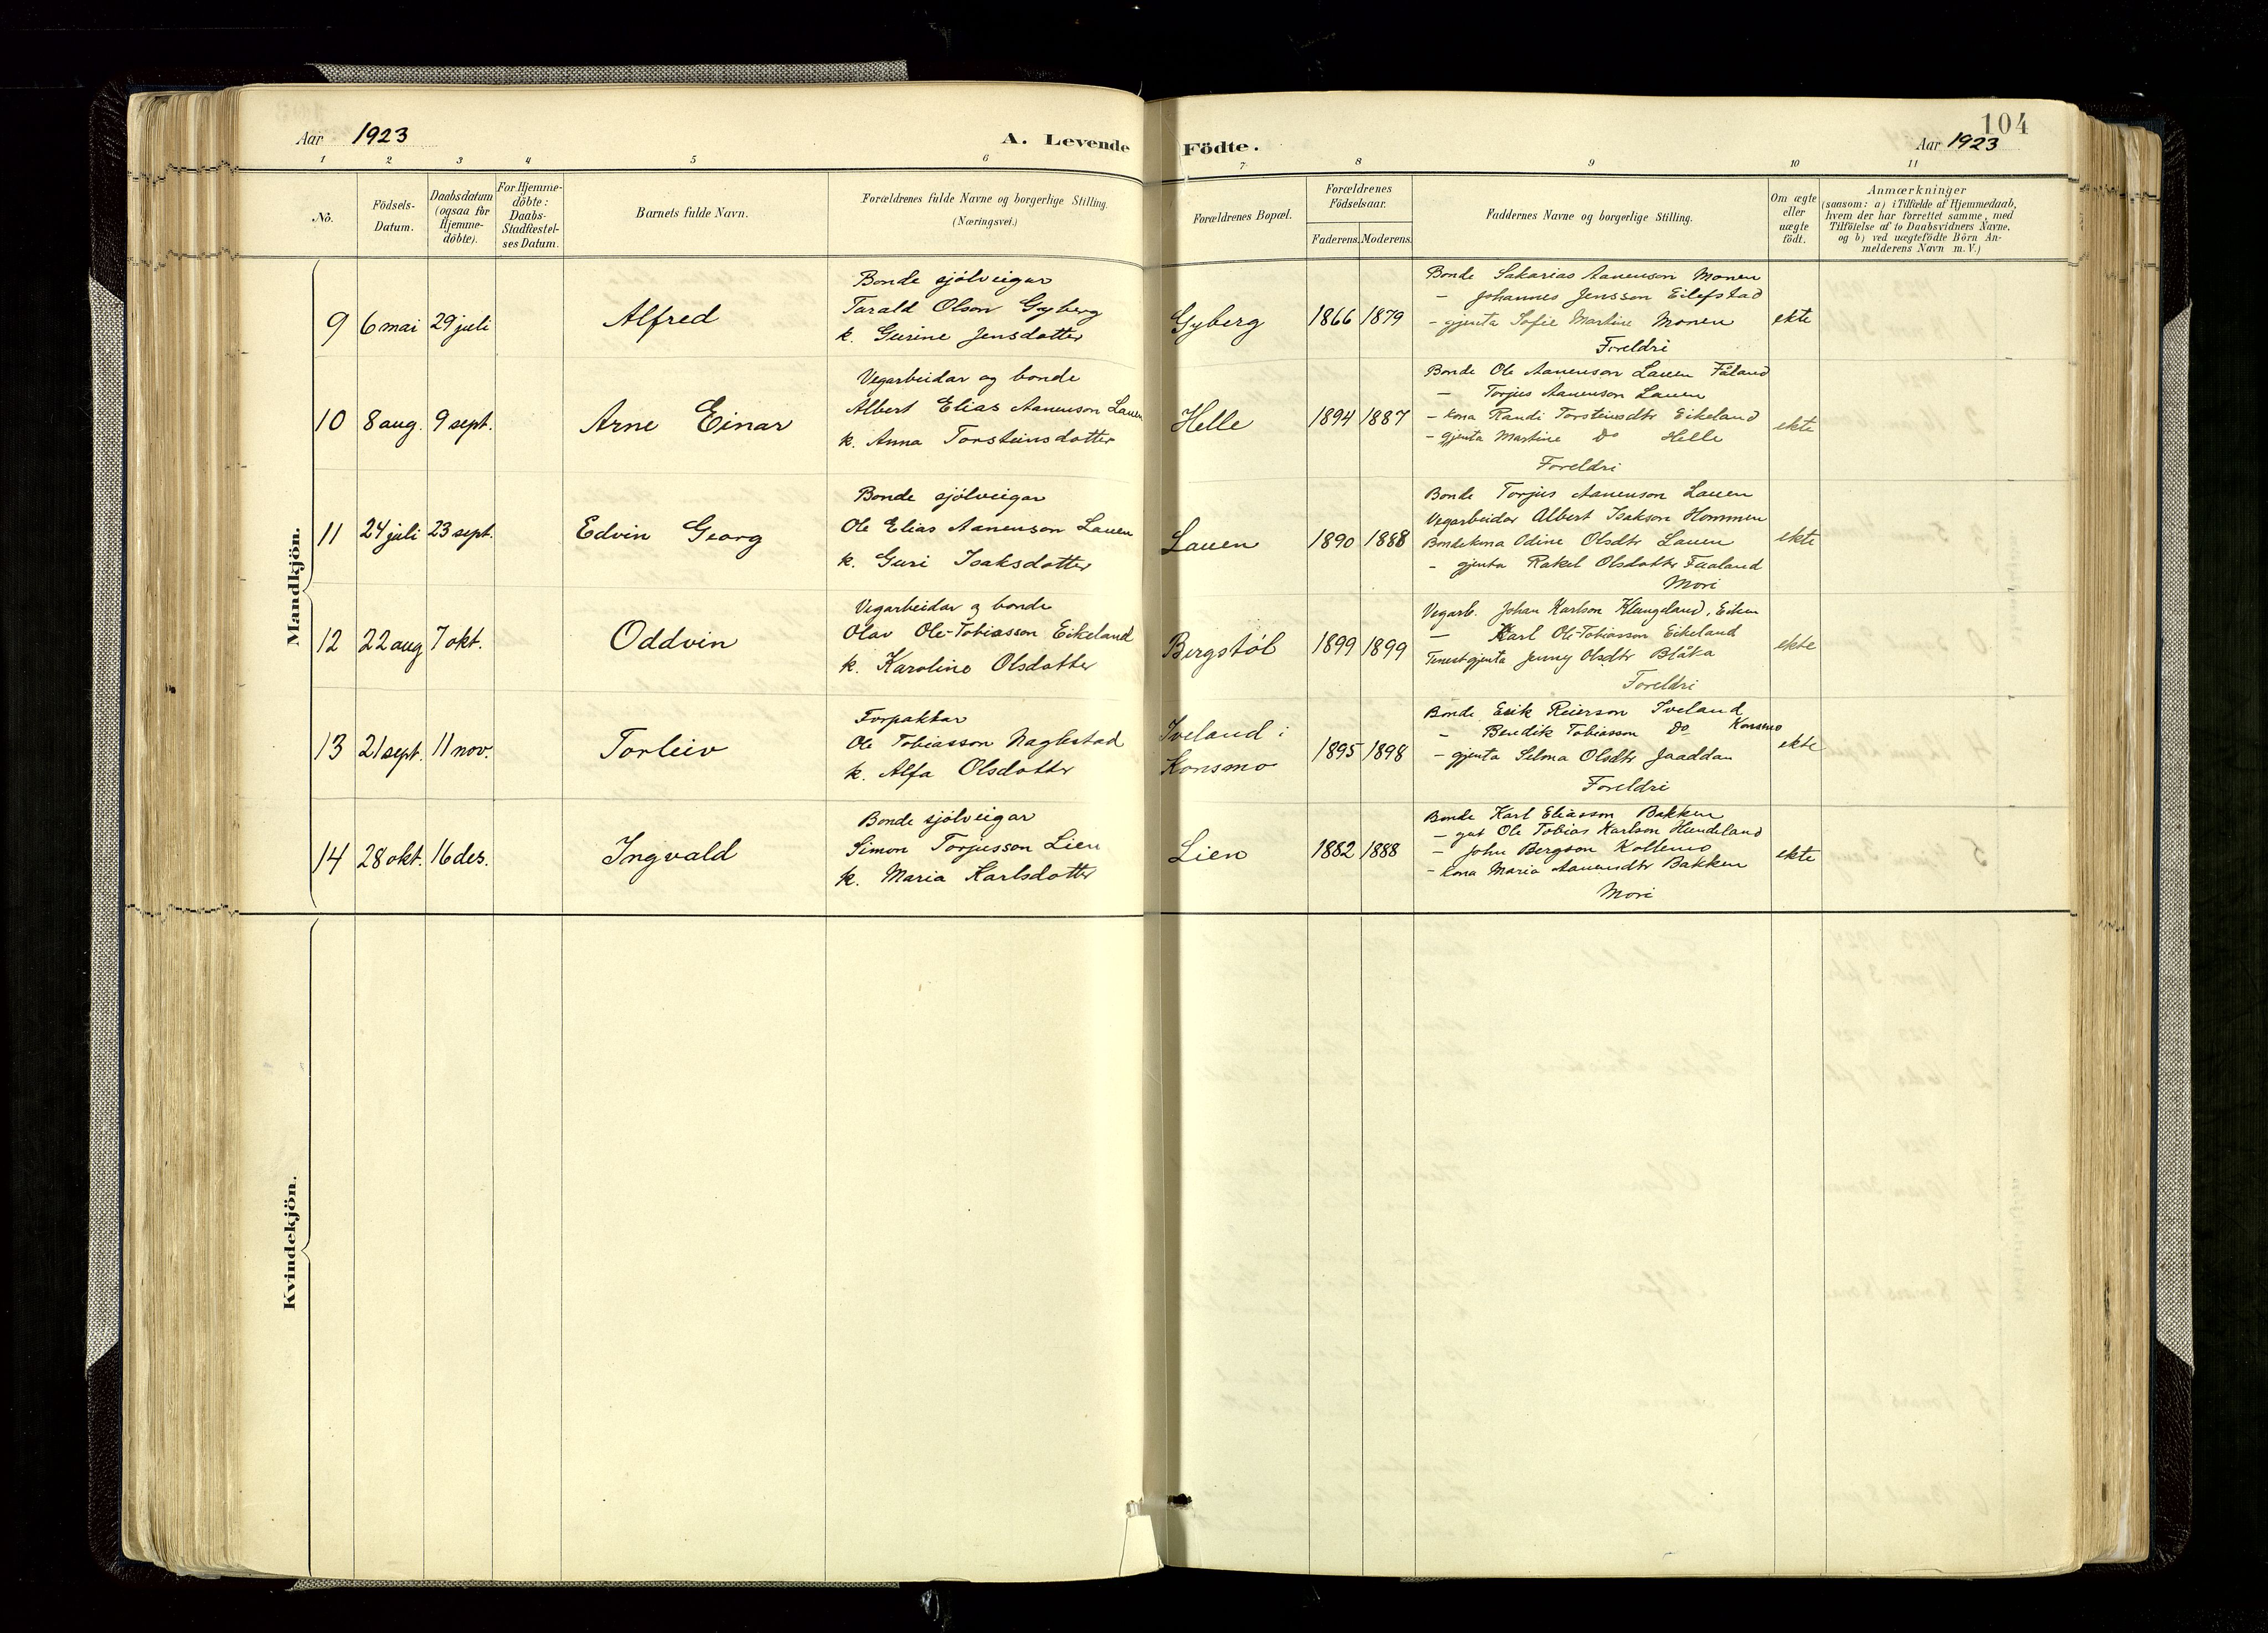 104
Aar 1923
A. Levende Födte.
Aar 1923
1 2 3 4 5 6 7 8 9 10 11
No.
Födsels-
Datum.
Daabsdatum
(ogsaa for
Hjemme-
döbte).
For Hjemme-
döbte:
Daabs-
Stadfæstel-
ses Datum.
Barnets fulde Navn.
Forældrenes fulde Navne og borgerlige Stilling.
(Næringsvei.)
Forældrenes Bopæl.
Forældrenes
Födselsaar.
Faderens. Moderens.
Faddernes Navne og borgerlige Stilling.
Om ægte
eller
uægte
födt.
Anmærkninger
(saasom: a) i Tilfælde af Hjemmedaab,
hvem der har forrettet samme, med
Tilföielse af to Daabsvidners Navne.
og b) ved uægtefödte Börn An-
melderens Navn m. V.)
Mandkjön.
9 6 mai 29 juli
Alfred
Bonde sjölveigar
Tarald Olson Gyberg
k. Gurine Jensdotter
Gyberg
1866 1879
Bonde Sakarias Aanenson Monen
– Johannes Jensson Eilefstad
– gjenta Sofie Martine Monen
Foreldri
ekte
10 8 aug. 9 sept.
Arne Einar
Vegarbeidar og bonde
Albert Elias Aanenson Lauen
k. Anna Torsteinsdotter
Helle
1894 1887
Bonde Ole Aanenson Lauen Fåland
– Torjus Aanenson Lauen
– kona Randi Torsteinsdtr Eikeland
– gjenta Martine Do Helle
Foreldri
ekte
11 24 juli 23 sept.
Edvin Georg
Bonde sjölveigar
Ole Elias Aanenson Lauen
k. Guri Isaksdotter
Lauen
1890 1888
Bonde Torjus Aanenson Lauen
Vegarbeidar Albert Isakson Hommen
Bondekona Odine Olsdtr Lauen
– gjenta Rakel Olsdotter Faaland
Mori
ekte
12 22 aug 7 okt.
Oddvin
Vegarbeidar og bonde
Olav Ole-Tobiasson Eikeland
k. Karoline Olsdotter
Bergstöl
1899 1899
Vegarb. Johan Karlson Klungeland, Eiken
– Karl Ole-Tobiasson Eikeland
Tenestgjenta Jenny Olsdtr Blåka
Foreldri
ekte
13 21 sept. 11 nov.
Torleiv
Forpaktar
Ole Tobiasson Naglestad
k. Alfa Olsdotter
Iveland i
Konsmo
1895 1898
Bonde Erik Reierson Iveland
– Bendik Tobiasson Do Konsmo
– gjenta Selma Olsdtr Jaaddan
Foreldri
ekte
14 28 okt. 16 des.
Ingvald
Bonde sjölveigar
Simon Torjusson Lien
k. Maria Karlsdotter
Lien
1882 1888
Bonde Karl Eliasson Bakken
– gut Ole Tobias Karlson Hundeland
– John Bergson Kollemo
– kona Maria Aanensdtr Bakken
Mori
ekte
Kvindekjön.